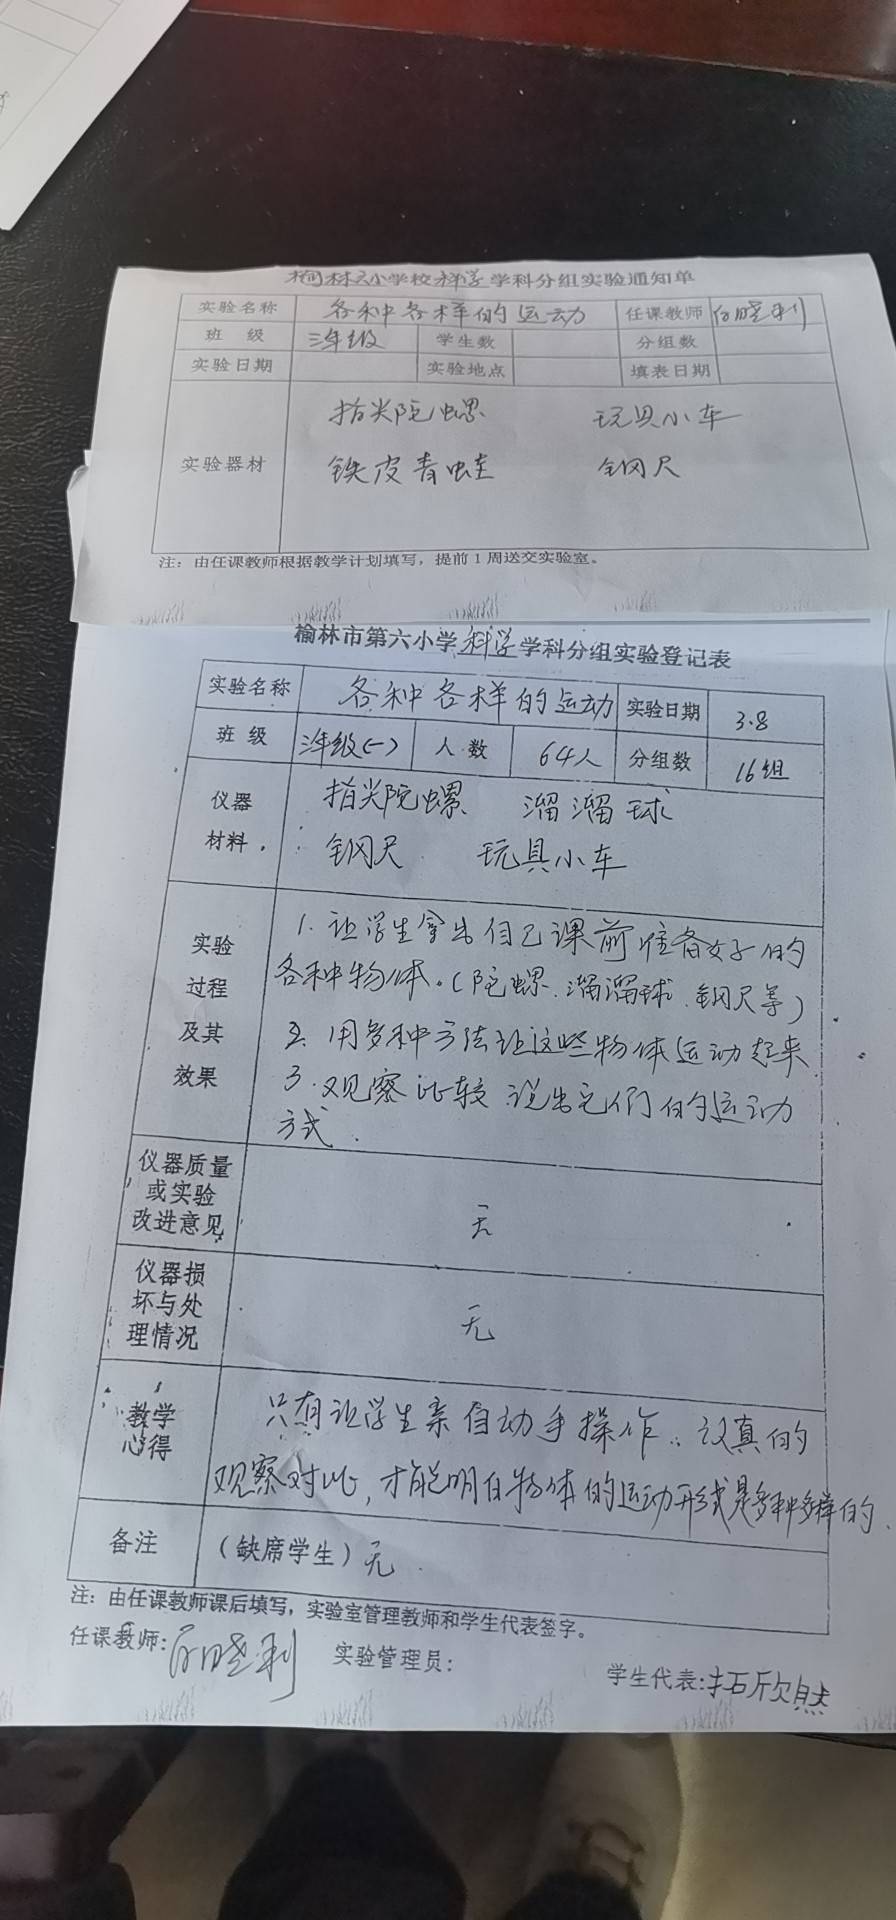 榆林六小学校科学学科分组实验通知单
实验名称 各种各样的运动 任课教师 晓利
班 级 三年级 学生数 分组数
实验日期 实验地点 填表日期
实验器材
指尖陀螺 玩具小车
铁皮青蛙 钢尺
注：由任课教师根据教学计划填写，提前1周送交实验室。
榆林市第六小学科学学科分组实验登记表
实验名称 各种各样的运动 实验日期 3.8
班 级 三年级(一) 人数 64人 分组数 16组
仪器
材料
指尖陀螺 溜溜球
钢尺 玩具小车
实验
过程
及其
效果
1. 让学生拿出自己课前准备好的
各种物体。(陀螺、溜溜球、钢尺等)
2. 用多种方法让这些物体运动起来
3. 观察比较说出它们的运动
方式.
仪器质量
或实验
改进意见
无
仪器损
坏与处
理情况
无
教学
心得
只有让学生亲自动手操作，认真的
观察对比，才能明白物体的运动形式是多种多样的.
备注 (缺席学生) 无
注：由任课教师课后填写，实验室管理教师和学生代表签字。
任课教师: 晓利 实验管理员: 学生代表: 欣然